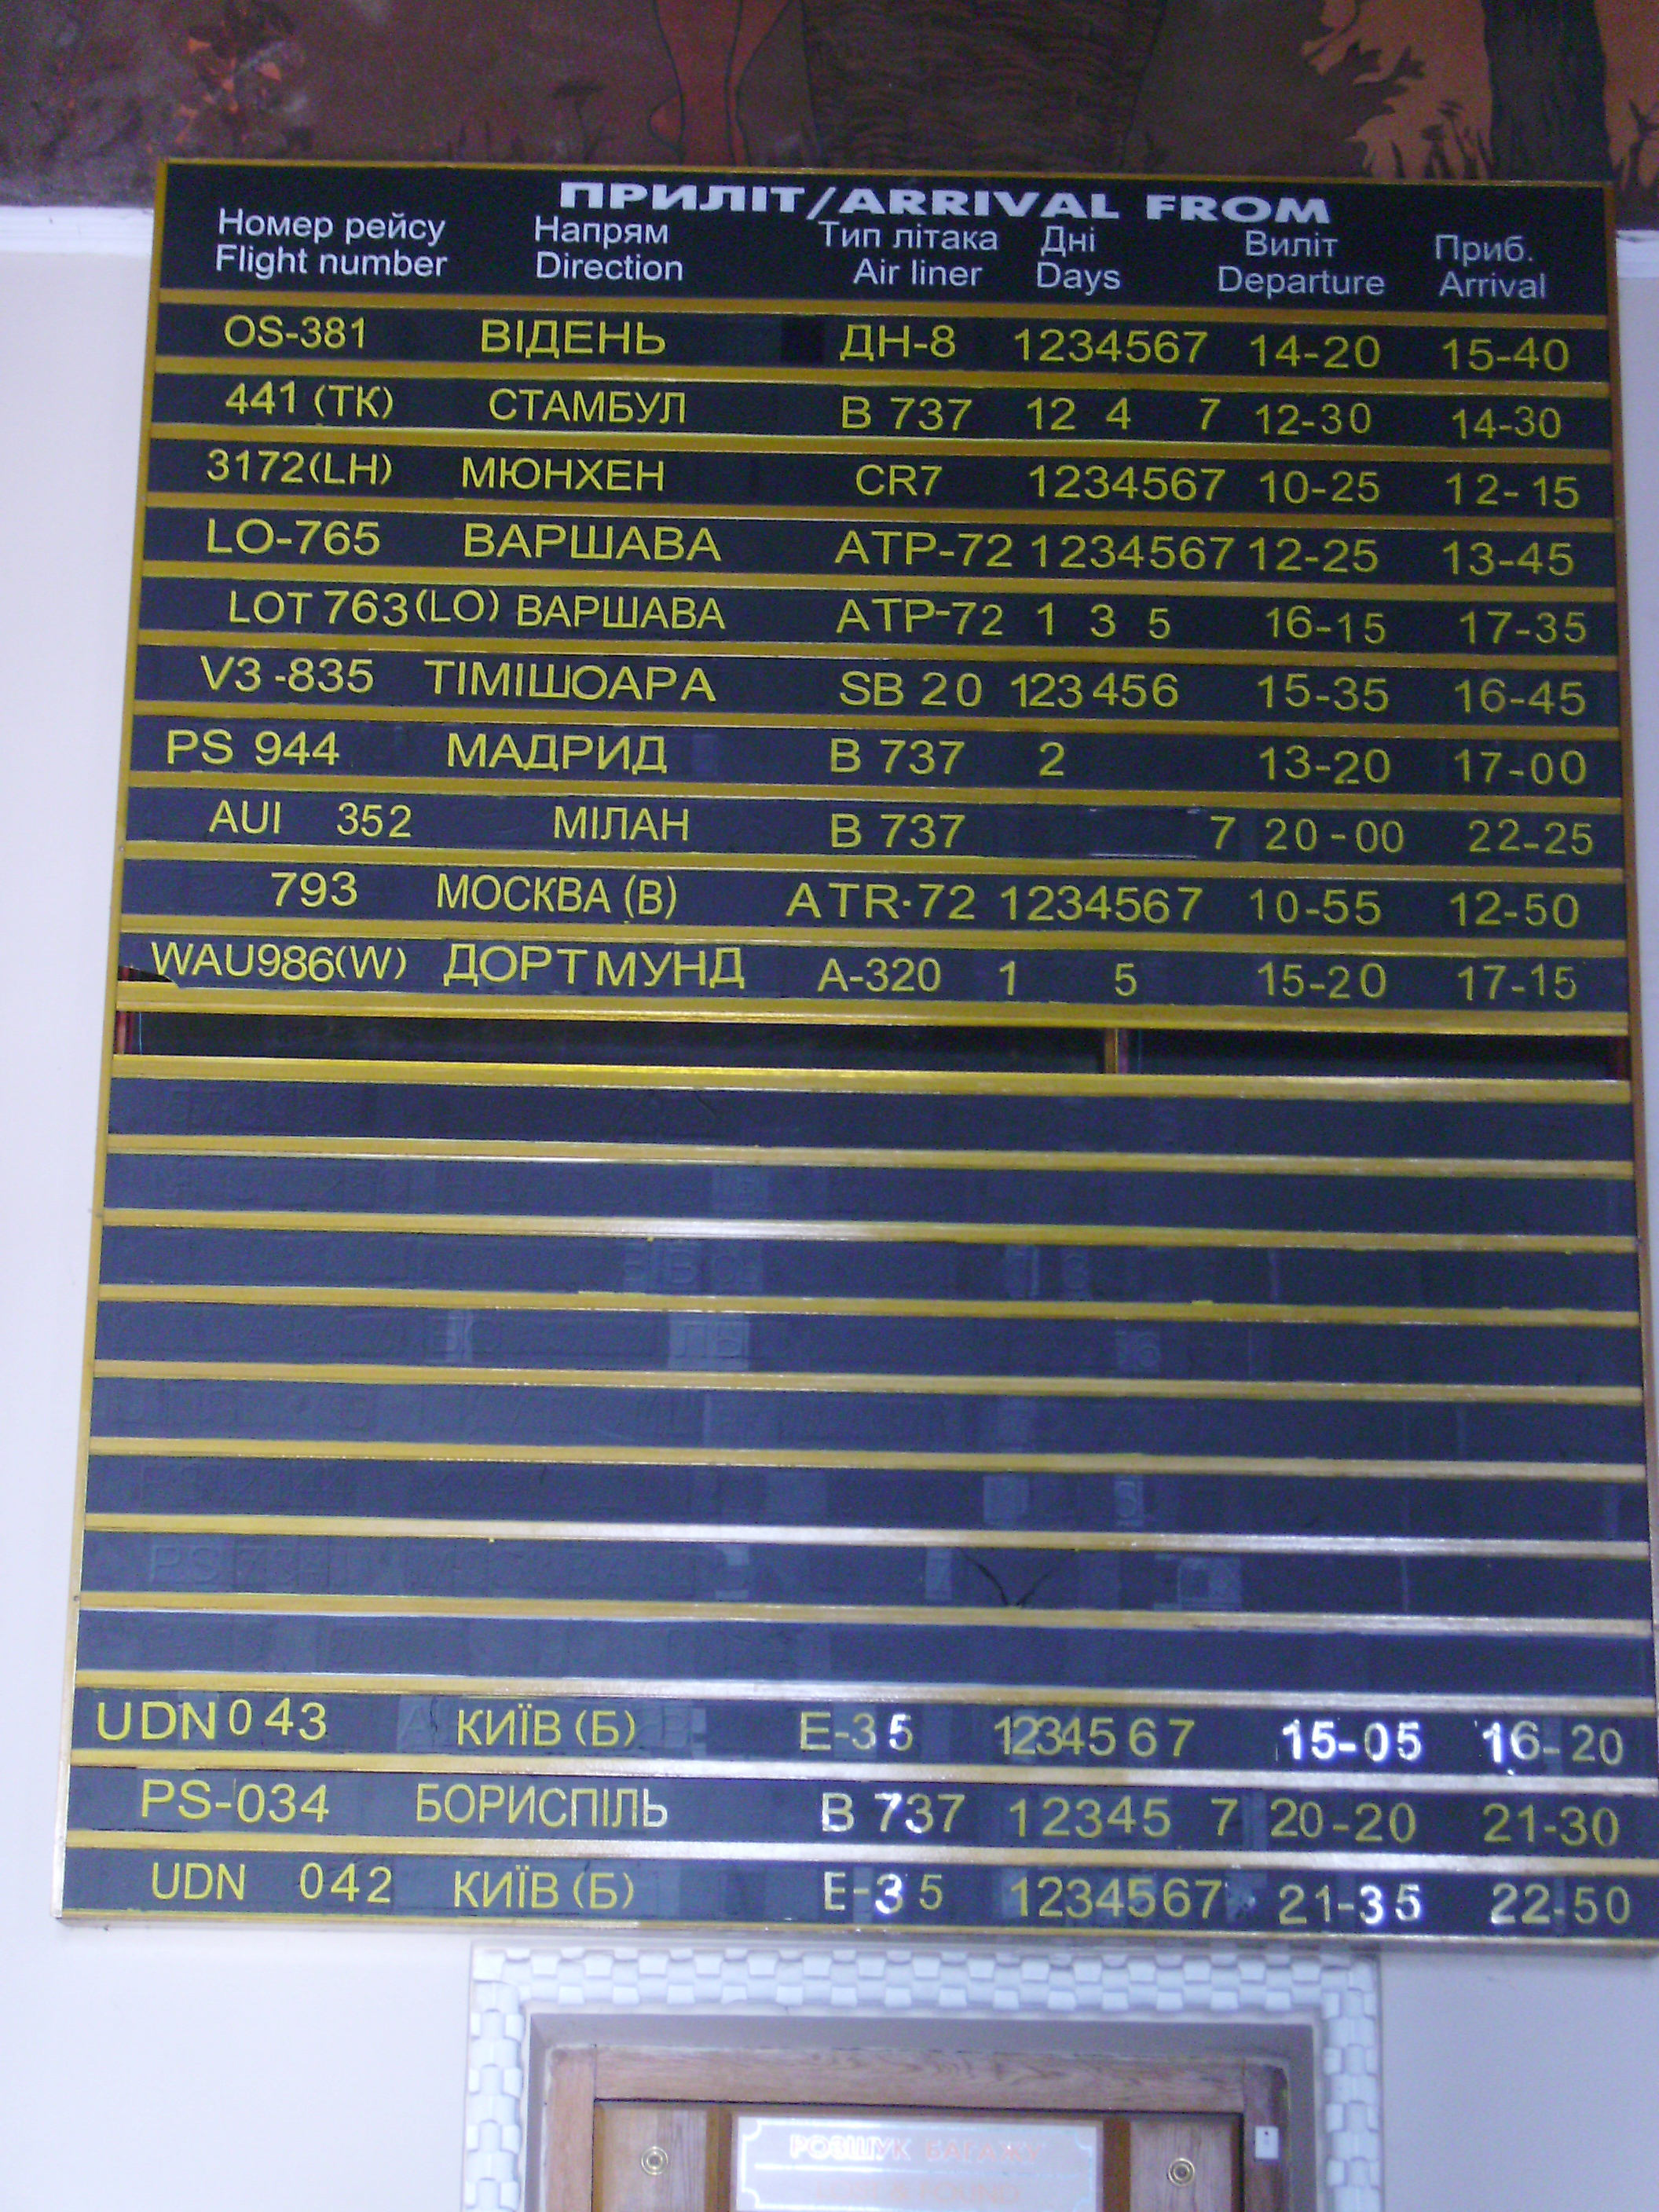 ПРИЛІТ/ARRIVAL FROM
Номер рейсу Напрям Тип літака Дні Виліт Приб.
Flight number Direction Air liner Days Departure Arrival
OS-381 ВІДЕНЬ ДН-8 1234567 14-20 15-40
441 (ТК) СТАМБУЛ В 737 12 4 7 12-30 14-30
3172(LH) МЮНХЕН CR7 1234567 10-25 12-15
LO-765 ВАРШАВА АТР-72 1234567 12-25 13-45
LOT 763(LO) ВАРШАВА АТР-72 1 3 5 16-15 17-35
V3-835 ТІМІШОАРА SB 20 123456 15-35 16-45
PS 944 МАДРИД В 737 2 13-20 17-00
AUI 352 МІЛАН В 737 7 20-00 22-25
793 МОСКВА (В) ATR-72 1234567 10-55 12-50
WAU986(W) ДОРТМУНД А-320 1 5 15-20 17-15
UDN 043 КИЇВ (Б) Е-35 1234567 15-05 16-20
PS-034 БОРИСПІЛЬ В 737 12345 7 20-20 21-30
UDN 042 КИЇВ (Б) Е-35 1234567 21-35 22-50
РОЗШУК БАГАЖУ